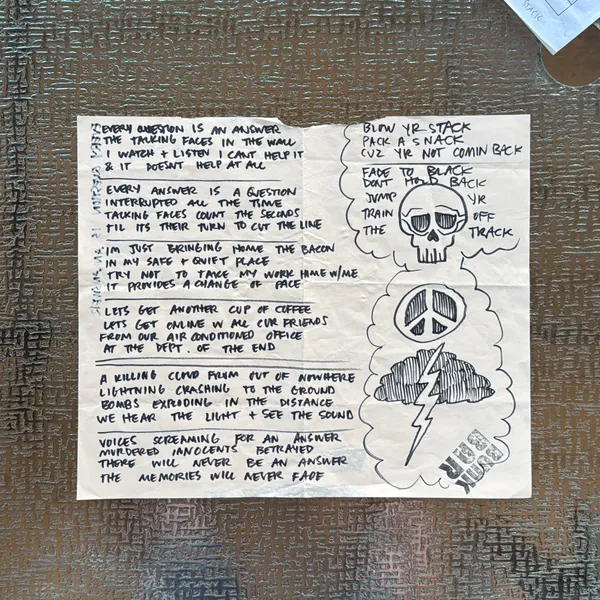 EVERY QUESTION IS AN ANSWER
THE TALKING FACES IN THE WALL
I WATCH + LISTEN I CANT HELP IT
& IT DOESNT HELP AT ALL
EVERY ANSWER IS A QUESTION
INTERRUPTED ALL THE TIME
TALKING FACES COUNT THE SECONDS
TIL ITS THEIR TURN TO CUT THE LINE
IM JUST BRINGING HOME THE BACON
IN MY SAFE + QUIET PLACE
TRY NOT TO TAKE MY WORK HOME W/ME
IT PROVIDES A CHANGE OF FACE
LETS GET ANOTHER CUP OF COFFEE
LETS GET ONLINE W ALL OUR FRIENDS
FROM OUR AIR CONDITIONED OFFICE
AT THE DEPT. OF THE END
A KILLING CLOUD FROM OUT OF NOWHERE
LIGHTNING CRASHING TO THE GROUND
BOMBS EXPLODING IN THE DISTANCE
WE HEAR THE LIGHT + SEE THE SOUND
VOICES SCREAMING FOR AN ANSWER
MURDERED INNOCENTS BETRAYED
THERE WILL NEVER BE AN ANSWER
THE MEMORIES WILL NEVER FADE
BLOW YR STACK
PACK A SNACK
CUZ YR NOT COMIN BACK
FADE TO BLACK
DONT HOLD BACK
JUMP YR
TRAIN OFF
THE TRACK
BUNK
BAR